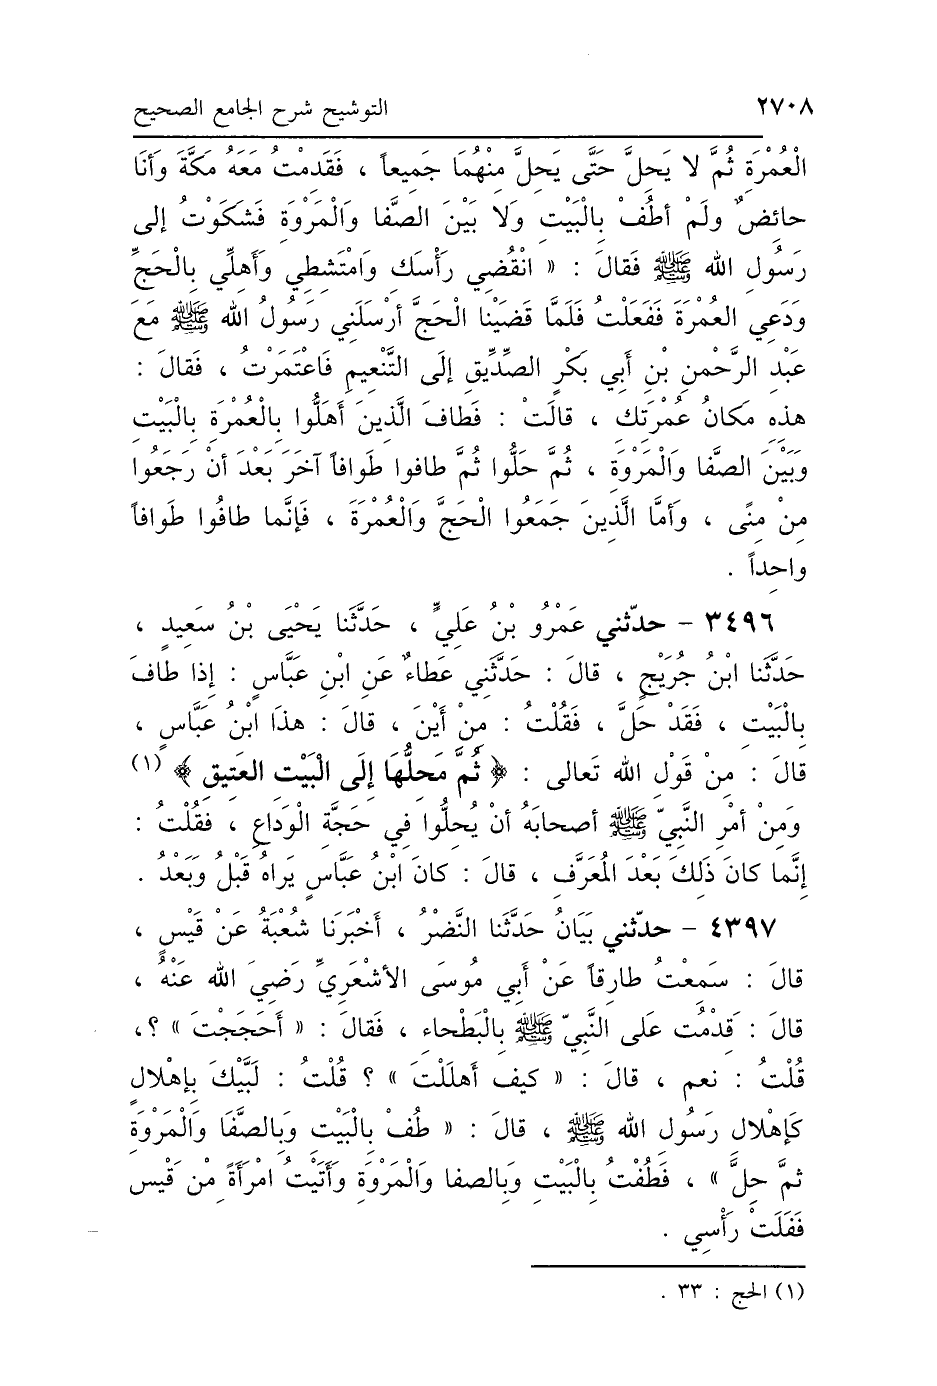 ٢٧٠٨ التوشيح شرح الجامع الصحيح
الْعُمْرَةِ ثُمَّ لا يَحِلَّ حَتَّى يَحِلَّ مِنْهُمَا جَميعاً ، فَقَدِمْتُ مَعَهُ مَكَّةَ وَأنَا
حائِضٌ ولَمْ أطُفْ بِالْبَيْتِ وَلا بَيْنَ الصَّفا وَالْمَرْوَةِ فَشَكَوْتُ إلى
رَسُولِ الله ﷺ فَقالَ : « انْقُضي رَأْسَكِ وَامْتَشِطي وَأهِلِّي بِالْحَجِّ
وَدَعي العُمْرَةَ فَفَعَلْتُ فَلَمَّا قَضَيْنا الْحَجَّ أرْسَلَني رَسُولُ الله ﷺ مَعَ
عَبْدِ الرَّحْمنِ بْنِ أبي بَكْرٍ الصِّدِّيقِ إلَى التَّنْعيمِ فَاعْتَمَرْتُ ، فَقالَ :
هذه مَكانُ عُمْرَتِك ، قالَتْ : فَطافَ الَّذينَ أهَلُّوا بِالْعُمْرَةِ بِالْبَيْتِ
وَبَيْنَ الصَّفا وَالْمَرْوَةِ ، ثُمَّ حَلُّوا ثُمَّ طافوا طَوافاً آخَرَ بَعْدَ أنْ رَجَعُوا
مِنْ مِنًى ، وَأمَّا الَّذينَ جَمَعُوا الْحَجَّ وَالْعُمْرَةَ ، فَإنَّما طافُوا طَوافاً
واحِداً .
٣٤٩٦ - حدّثني عَمْرُو بْنُ عَلِيٍّ ، حَدَّثَنا يَحْيَى بْنُ سَعِيدٍ ،
حَدَّثَنا ابْنُ جُرَيْجٍ ، قالَ : حَدَّثَني عَطاءٌ عَنِ ابْنِ عَبَّاسٍ : إذا طافَ
بِالْبَيْتِ ، فَقَدْ حَلَّ ، فَقُلْتُ : مِنْ أَيْنَ ، قالَ : هذَا ابْنُ عَبَّاسٍ ،
قالَ : مِنْ قَوْلِ الله تَعالى : ﴿ ثُمَّ مَحِلُّهَا إلَى الْبَيْتِ العَتِيقِ ﴾ (١)
وَمِنْ أمْرِ النَّبِيّ ﷺ أصحابَهُ أنْ يُحِلُّوا في حَجَّةِ الْوَداعِ ، فَقُلْتُ :
إنَّما كانَ ذَلِكَ بَعْدَ الْمُعَرَّفِ ، قالَ : كانَ ابْنُ عَبَّاسٍ يَراهُ قَبْلُ وَبَعْدُ .
٤٣٩٧ - حدّثني بَيَانُ حَدَّثَنا النَّضْرُ ، أَخْبَرَنَا شُعْبَةُ عَنْ قَيْسٍ ،
قالَ : سَمِعْتُ طارِقاً عَنْ أبي مُوسَى الأشْعَرِيِّ رَضِيَ الله عَنْهُ ،
قالَ : قَدِمْت عَلى النَّبِيّ ﷺ بِالْبَطْحاءِ ، فَقالَ : « أَحَجَجْتَ » ؟،
قُلْتُ : نعم ، قالَ : « كيف أهلَلْتَ » ؟ قُلْتُ : لَبَّيْكَ بِإهْلالٍ
كَإهْلالِ رَسُولِ الله ﷺ ، قالَ : « طُفْ بِالْبَيْتِ وَبِالصَّفَا وَالْمَرْوَةِ
ثمَّ حِلَّ » ، فَطُفْتُ بِالْبَيْتِ وَبِالصفا وَالْمَرْوَةِ وَأَتَيْتُ امْرَأَةً مِنْ قَيْسٍ
فَفَلَتْ رَأْسِي .
(١) الحج : ٣٣ .